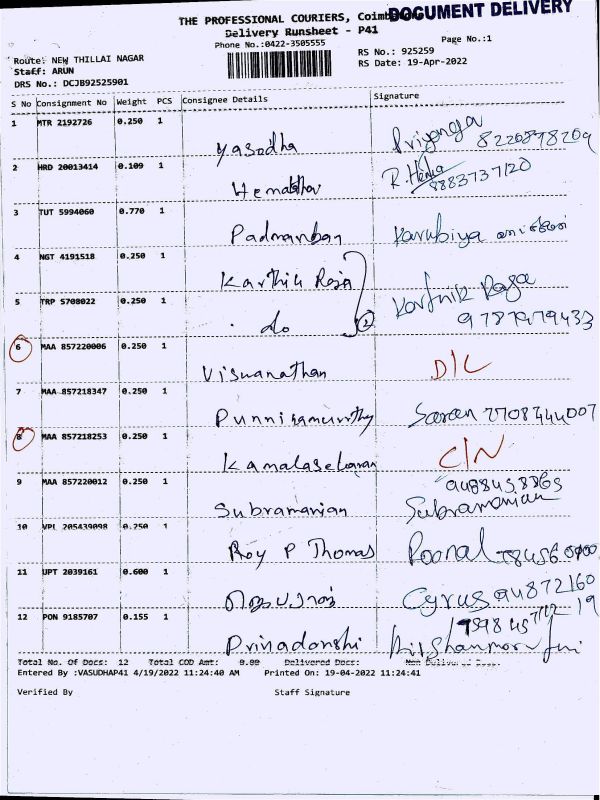 DOCUMENT DELIVERY
THE PROFESSIONAL COURIERS,
Delivery Runsheet - P41
Phone No.:0422-3505555
Page No.:1
Route: NEW THILLAI NAGAR
Staff: ARUN
DRS No.: DCJB92525901
RS No.: 925259
RS Date: 19-Apr-2022
S No Consignment No Weight PCS Consignee Details Signature
1 MTR 2192726 0.250 1 Yasodha Priyanga
2 HRD 20013414 0.109 1 R. Hema 8883737120
3 TUT 5994060 0.770 1 Padmanban
4 NGT 4191518 0.250 1 Karthik Raja
5 TRP 5708022 0.250 1 do 2 Karthik Raja
6 MAA 857220006 0.250 1 Viswanathan D/L
7 MAA 857218347 0.250 1 Saran 7708744007
8 MAA 857218253 0.250 1 Kamalasekaran C/N
9 MAA 857220012 0.250 1 Subramanian Subramanian
10 VPL 205439098 0.250 1 Roy P Thomas
11 UPT 2039161 0.600 1 Cyrus
12 PON 9185707 0.155 1
Total No. Of Docs: 12 Total COD Amt: 0.00 Delivered Docs: Non Delivered Docs:
Entered By :VASUDHAP41 4/19/2022 11:24:40 AM Printed On: 19-04-2022 11:24:41
Verified By Staff Signature